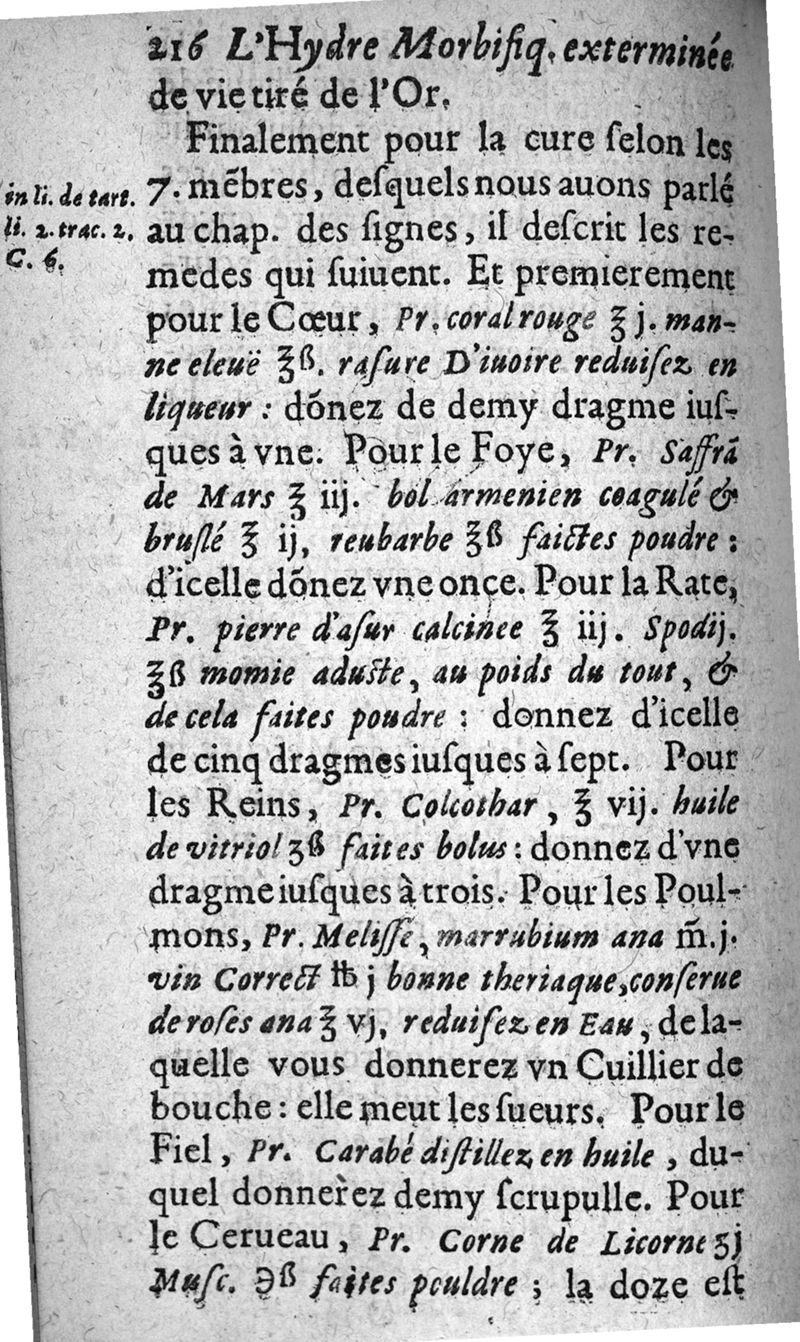 216 L'Hydre Morbifiq. exterminée
de vie tiré de l'Or.
Finalement pour la cure ſelon les
in li. de tart.
li. 2. trac. 2.
C. 6.
7. mẽbres, deſquels nous auons parlé
au chap. des ſignes, il deſcrit les re-
medes qui ſuiuent. Et premierement
pour le Cœur, Pr. coral rouge ℥ j. man-
ne eleuë ℥ß. raſure D'iuoire reduiſez en
liqueur : dõnez de demy dragme iuſ-
ques à vne. Pour le Foye, Pr. Saffrã
de Mars ℥ iij. bol armenien coagulé &
bruſlé ℥ ij, reubarbe ℥ß faictes poudre :
d'icelle dõnez vne once. Pour la Rate,
Pr. pierre d'aſur calcinee ℥ iij. Spodij.
℥ß momie aduſte, au poids du tout, &
de cela faites poudre : donnez d'icelle
de cinq dragmes iuſques à ſept. Pour
les Reins, Pr. Colcothar, ℥ vij. huile
de vitriol ʒß faites bolus : donnez d'vne
dragme iuſques à trois. Pour les Poul-
mons, Pr. Meliſſe, marrubium ana m̃. j.
vin Correct ℔ j bonne theriaque, conſerue
de roſes ana ℥ vj, reduiſez en Eau, de la-
quelle vous donnerez vn Cuillier de
bouche : elle meut les ſueurs. Pour le
Fiel, Pr. Carabé diſtillez en huile, du-
quel donnerez demy ſcrupulle. Pour
le Cerueau, Pr. Corne de Licorne ʒj
Muſc. ℈ß faites pouldre ; la doze eſt